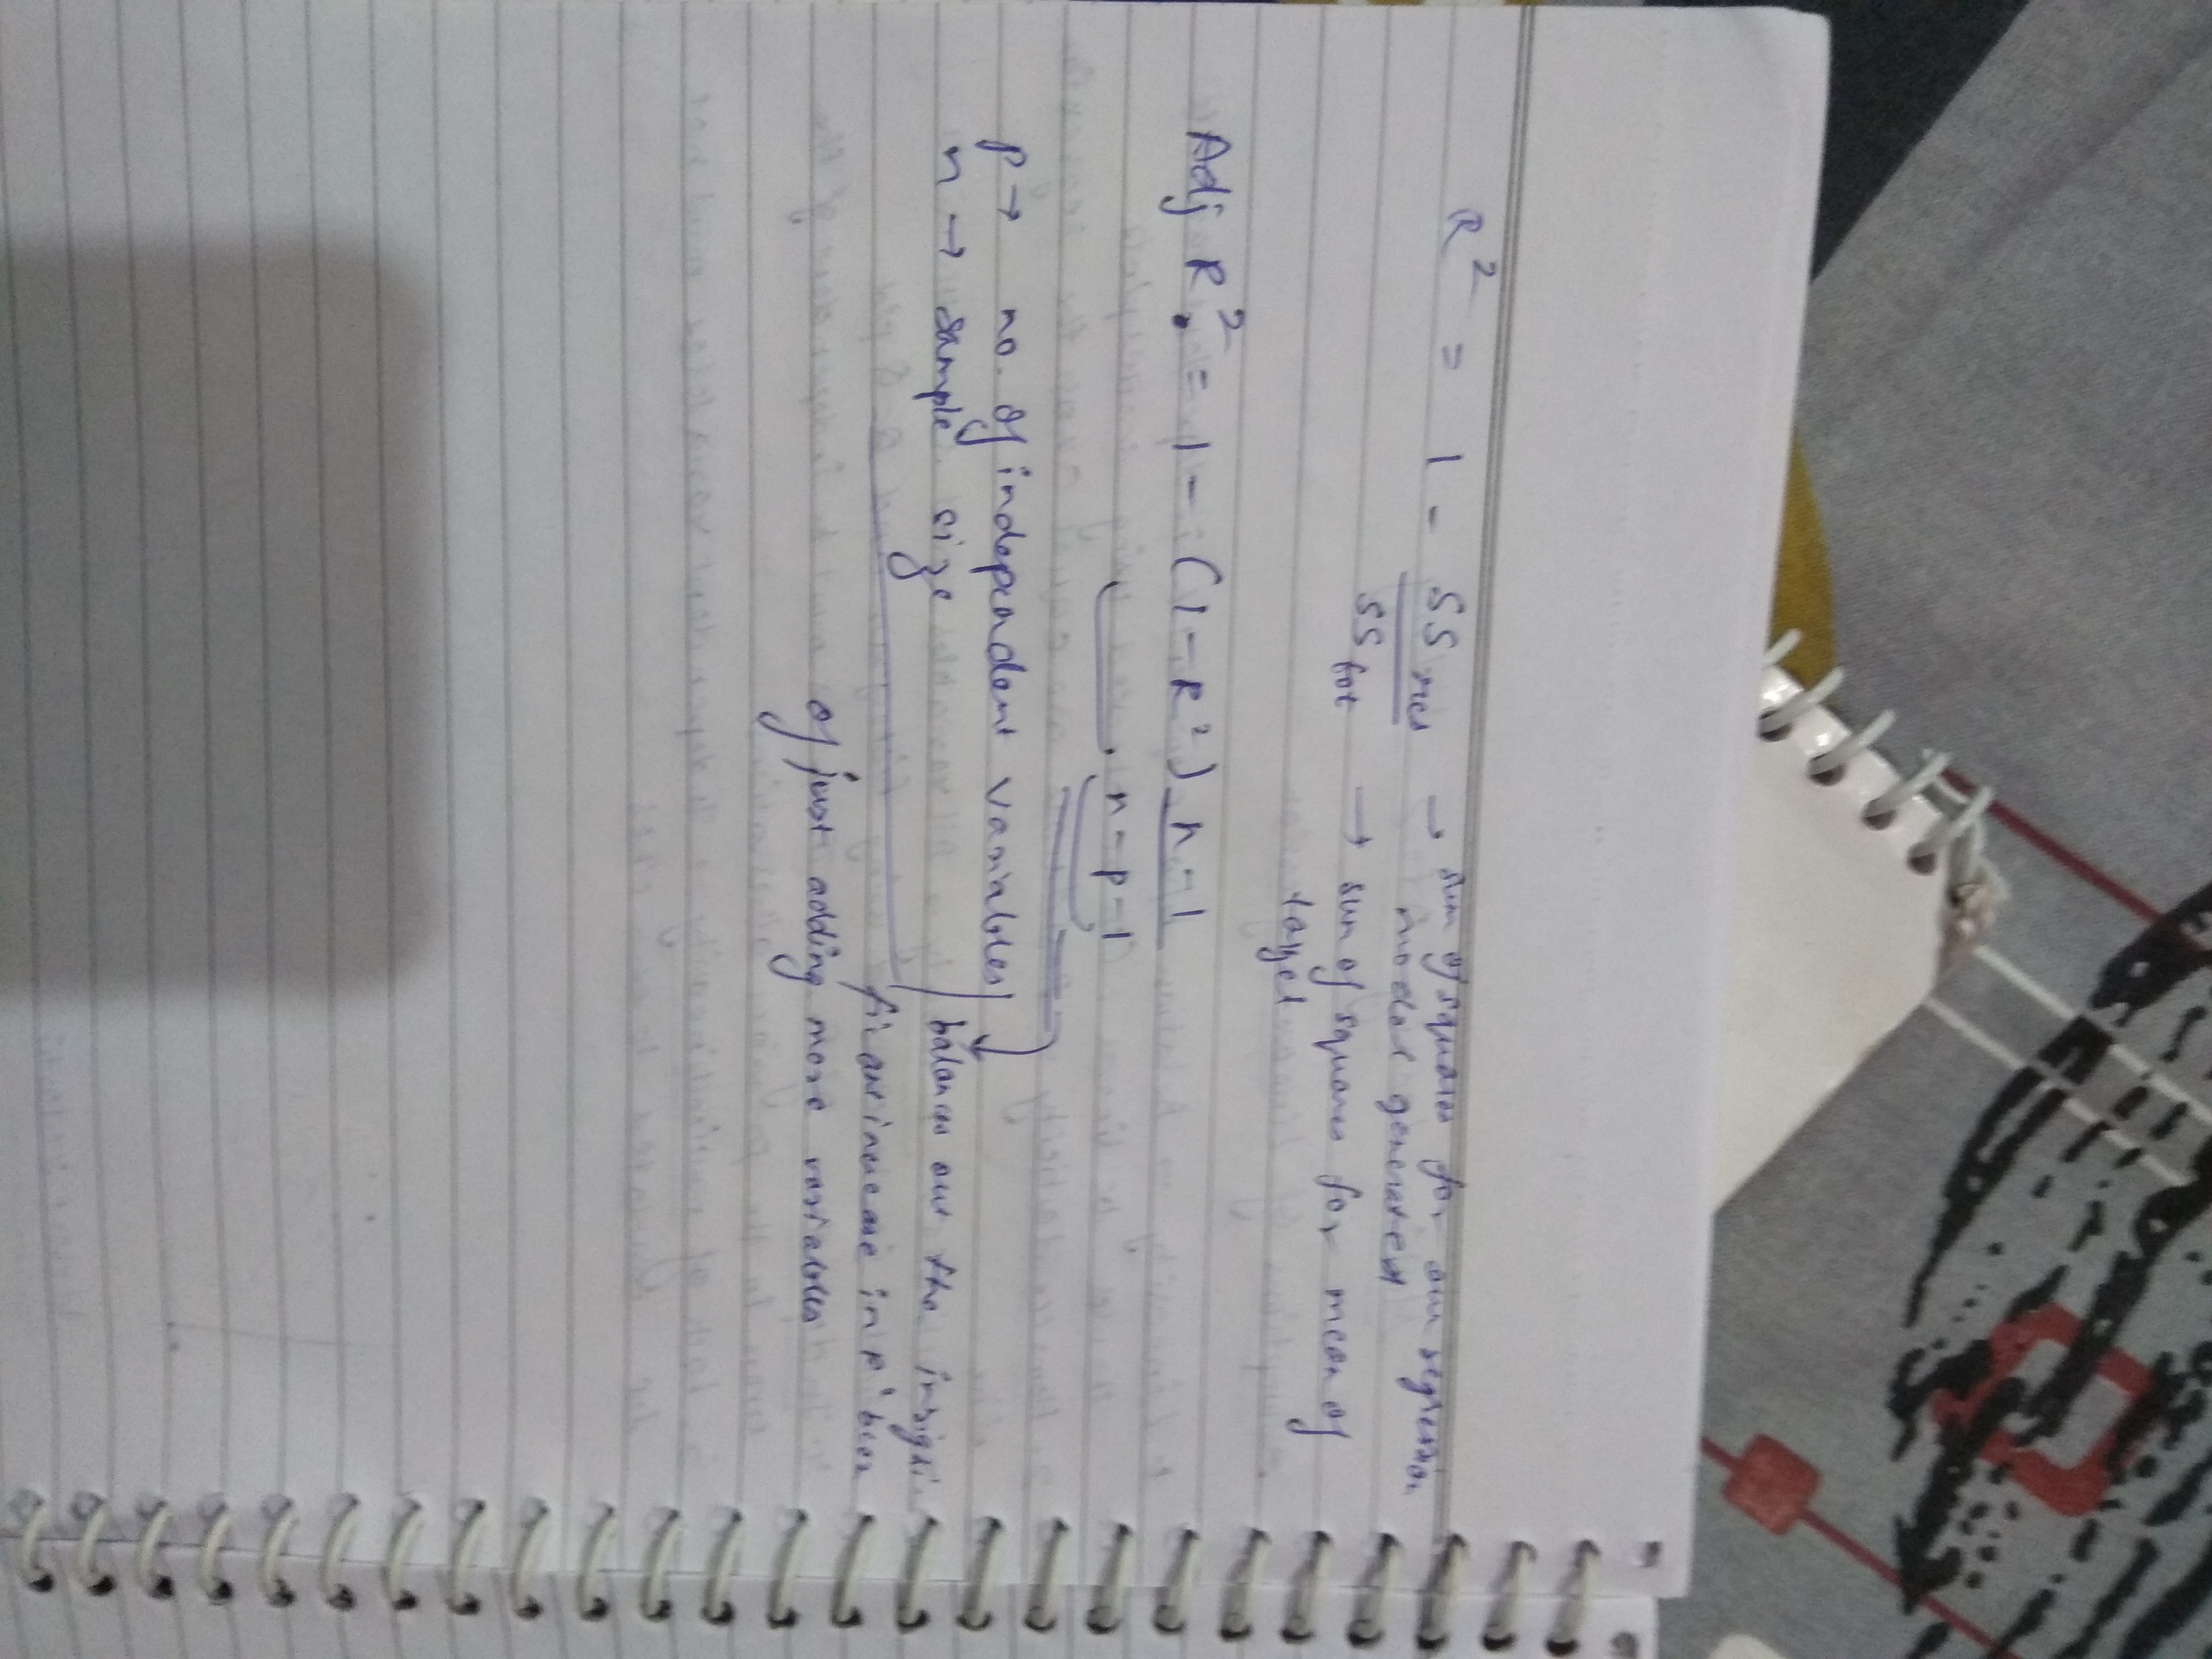 R² = 1 - SS res → sum of squares for our regression
model generated
SS tot → sum of squares for mean of
target
Adj R² = 1 - (1-R²) n-1
n-p-1
p → no. of independent variables
n → sample size
balances out the insigni
ficant increase in R² bcoz
of just adding more variables